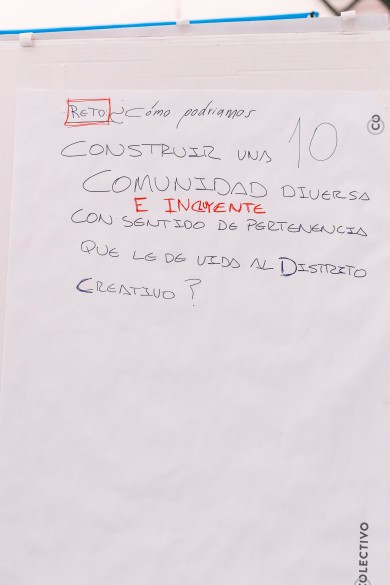 RETO ¿Cómo podríamos
10
CONSTRUIR UNA
COMUNIDAD DIVERSA
E INCLUYENTE
CON SENTIDO DE PERTENENCIA
QUE LE DE VIDA AL DISTRITO
CREATIVO?
CO
COLECTIVO